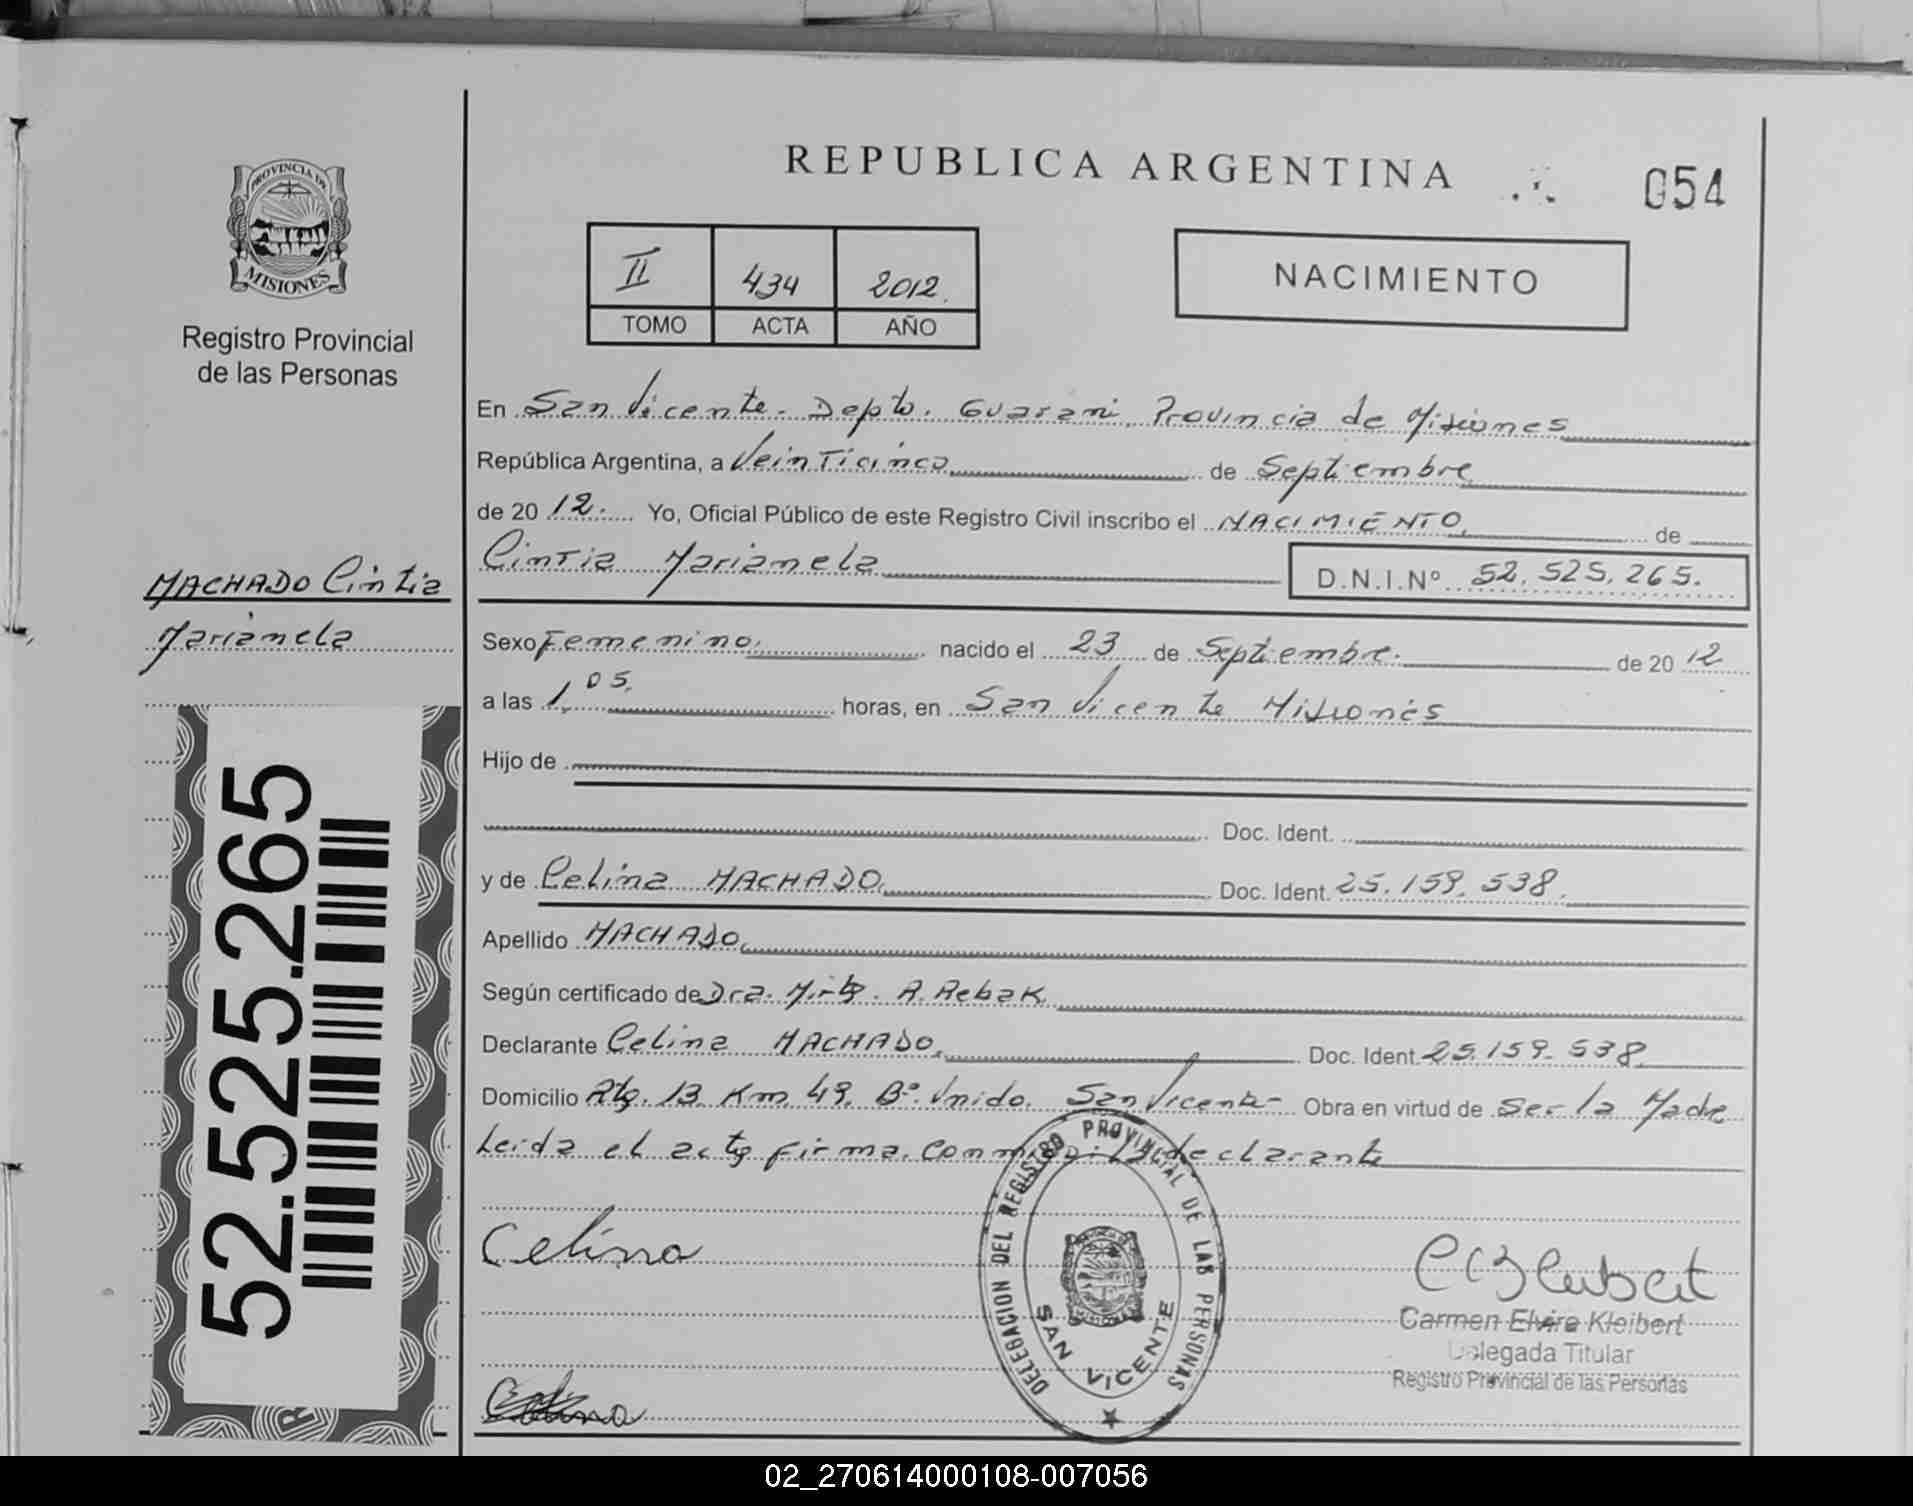 REPUBLICA ARGENTINA
054
PROVINCIA DE
MISIONES
Registro Provincial
de las Personas
II 434 2012
TOMO ACTA AÑO
NACIMIENTO
En San Vicente - Depto. Guaraní, Provincia de Misiones
República Argentina, a Veinticinco de Septiembre
de 20 12. Yo, Oficial Público de este Registro Civil inscribo el NACIMIENTO de
Cintia Marianela D.N.I.Nº 52.525.265.
MACHADO Cintia
Marianela
Sexo Femenino. nacido el 23 de Septiembre. de 20 12
a las 1,05. horas, en San Vicente Misiones
Hijo de
Doc. Ident.
y de Celina MACHADO. Doc. Ident. 25.159.538.
Apellido MACHADO
Según certificado de Dra. Mirta. R. Rebak.
Declarante Celina MACHADO. Doc. Ident. 25.159.538.
Domicilio Rta. 13 Km 49. Bº. Unido. San Vicente - Obra en virtud de Ser la Madre
Leida el acta firma. conmigo: la declarante
52.525.265
Celina
DELEGACION DEL REGISTRO PROVINCIAL DE LAS PERSONAS
SAN VICENTE
Carmen Elvira Kleibert
Delegada Titular
Registro Provincial de las Personas
Celina
02_270614000108-007056